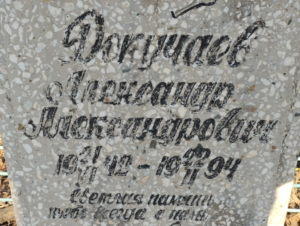 Докучаев
Александр
Александрович
19 21/VI 42 - 19 /II 94
Светлая память
тебе всегда с нами